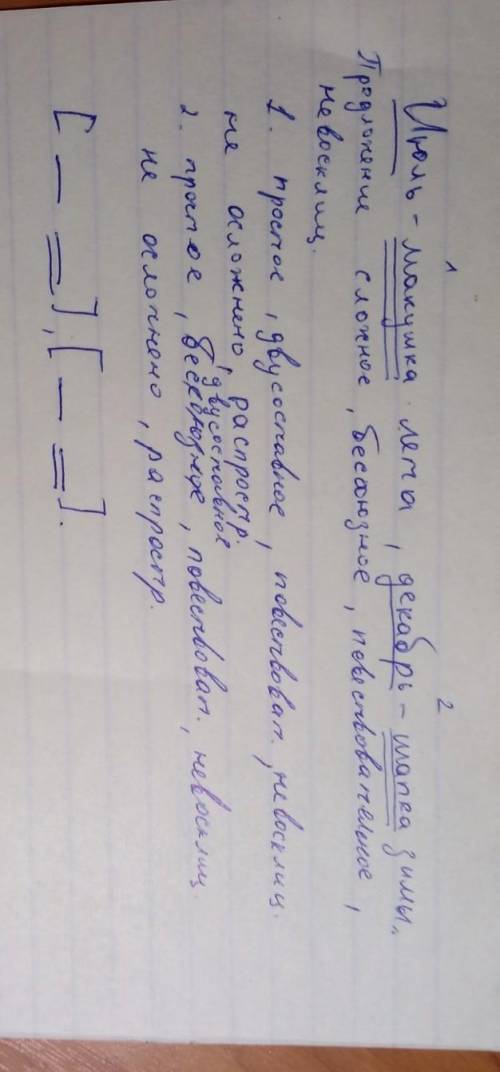 Июль - макушка лета, декабрь - шапка зимы.
1 2
Предложение сложное, бессоюзное, повествовательное,
невосклиц.
1. простое, двусоставное, повествоват., невосклиц.
не осложнено, распростр.
2. простое, двусоставное, повествоват., невосклиц.
не осложнено, распростр.
[ — = ], [ — = ].